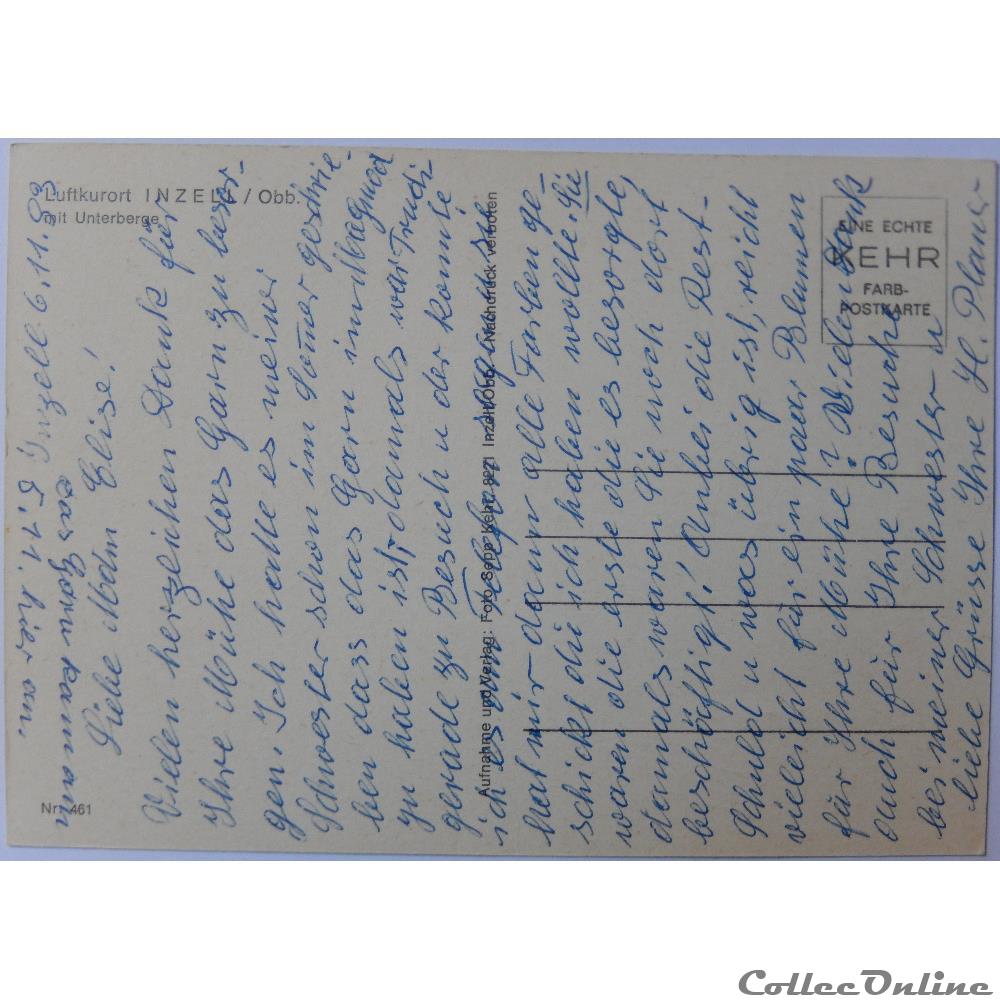 Luftkurort INZELL / Obb.
mit Unterberge
Nr. 461
Aufnahme und Verlag: Foto Sepp Kehr, 8221 Inzell/Obb. - Nachdruck verboten
EINE ECHTE
KEHR
FARB-
POSTKARTE
Inzell 6.11.89
das Garn kam am
5.11. hier an.
Liebe Mdm Elise!
Vielen herzlichen Dank für
Ihre Mühe das Garn zu besor-
gen. Ich hatte es meiner
Schwester schon im Somer geschrie-
ben dass das Garn im Magnud
zu haben ist, damals war Trudi
gerade zu Besuch u der konnte
ich es am Telefon sagen sie
hat mir dann alle Farben ge-
schickt die ich haben wollte. Sie
waren die erste die es besorgte,
damals waren Sie noch dort
beschäftigt! Anbei die Rest-
Schuld u was übrig ist, reicht
vieleicht für ein paar Blumen
für Ihre Mühe? Vielen Dank
auch für Ihre Besuche
bei meiner Schwester u
liebe Grüsse Ihre H. Planer
CollecOnline